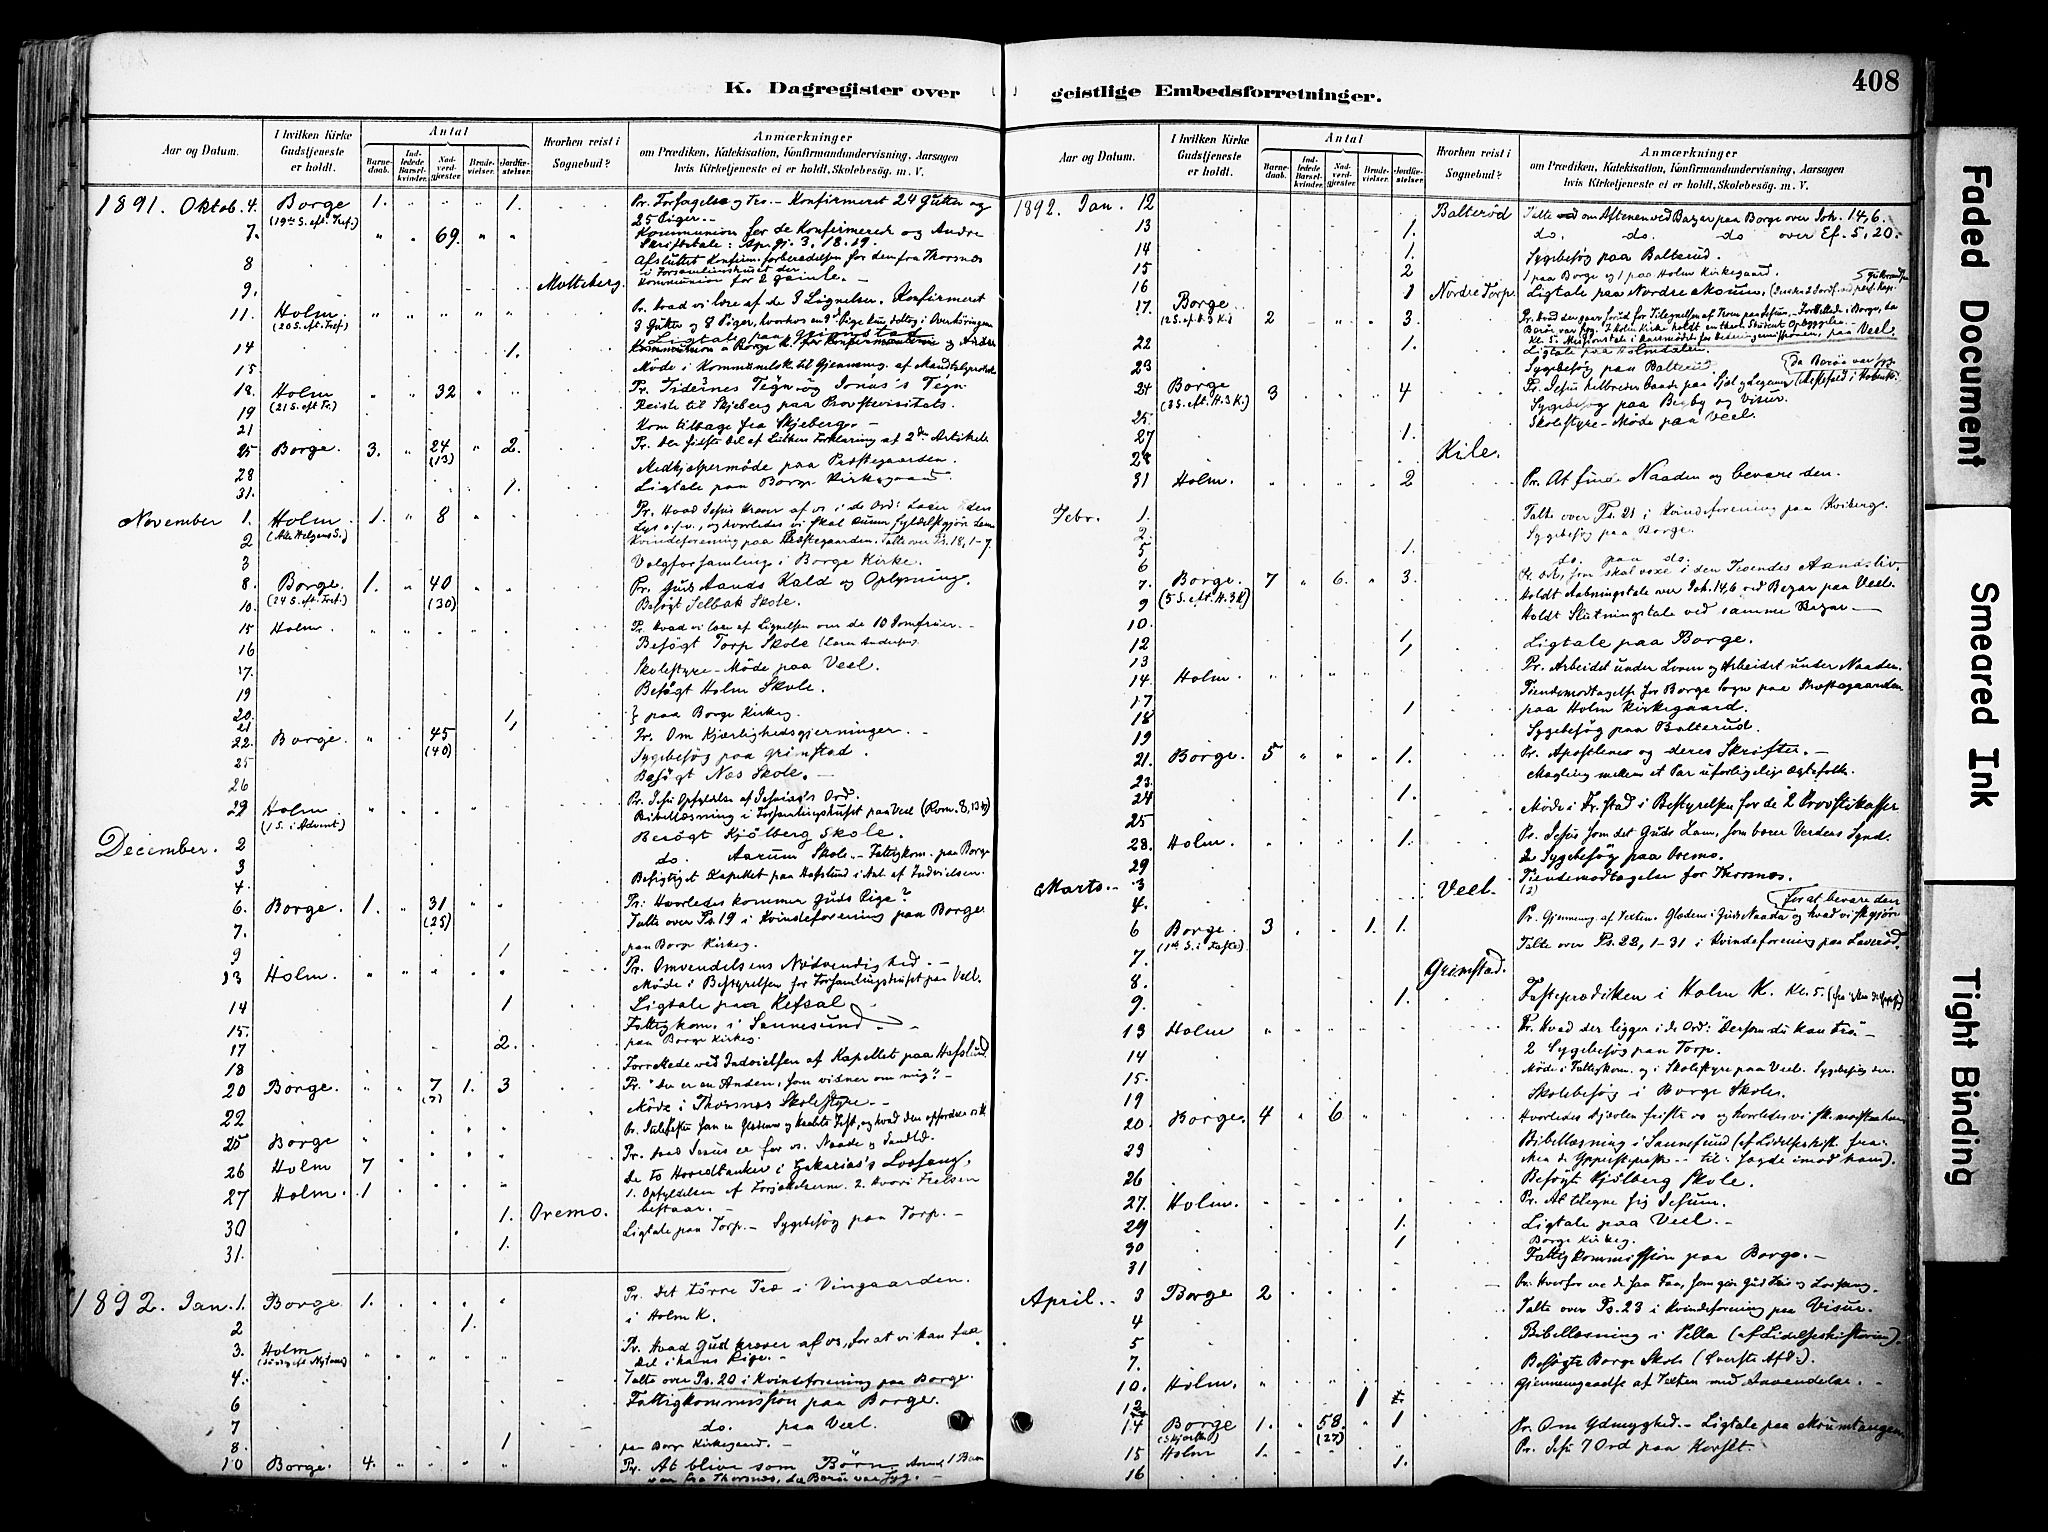 K. Dagregister over geistlige Embedsforretninger.
408
Aar og Datum.
I hvilken Kirke Gudstjeneste er holdt.
Antal
Barnedaab.
Indledede Barselkvinder.
Nadverdgjester.
Brudevielser.
Jordfæstelser.
Hvorhen reist i Sognebud?
Anmærkninger
om Prædiken, Katekisation, Konfirmandundervisning, Aarsagen
hvis Kirketjeneste ei er holdt, Skolebesøg. m. V.
1891. Oktob. 4. Borge 1. 1. Pr. Forsagelse og Tro. - Konfirmeret 24 Gutter og
(19de S. eft. Tref.) 25 Piger. -
7. 69. Kommunion for de Konfirmerede og Andre
Skriftetale: Ap. gj. 3, 18. 19.
8 Afsluttet Konfirm. forberedelsen for dem fra Thorsnæs
i Forsamlingshuset der
9. Molteberg. Kommunion for 2 gamle. -
11. Holm Pr. hvad vi lære af de 3 Lignelser. Konfirmeret
(20 S. eft. Tref.) 3 Gutter og 8 Piger,
14 1. Ligtale paa Grimstad
15 Møde i Kommunelok. til Gjennemg. af Mandtalsprotok.
18. Holm 32 Pr. Tidernes Tegn og Jonas's Tegn
(21 S. eft. Tr.)
19 Reiste til Skjeberg paa Provstevisitats.
21 Kom tilbage fra Skjeberg. -
25 Borge. 3. 24 (13) 2. Pr. Den første Del af Luthers Forklaring af 2den Artikel.
28 Medhjelpermøde paa Præstegaarden.
31. 1. Ligtale paa Borge Kirkegaard
November 1. Holm 1. 8 Pr. Hvad Jesus kræver af os i de Ord: Lader Eders
(Alle Helgens S.) Lys o.s.v., og hvorledes vi skal kunne fyldestgjøre
2 Kvindeforening paa Præstegaarden. Talte over Ps. 18, 1-7.
3 Valgforsamling i Borge Kirke.
8. Borge. 1. 40 (30) Pr. Guds Aands Kald og Oplysning.
(24 S. eft. Tref.)
10. Besøgt Selbak Skole.
15 Holm. Pr. hvad vi lære af Lignelsen om de 10 Jomfruer. -
16 Besøgt Torp Skole
17. Skolestyre-Møde paa Veel.
19 Besøgt Holm Skole.
20. 1 } paa Borge Kirkeg.
21 1,
22. Borge. 45 (40) Pr. Om Kjærlighedsgjerninger. -
25 Sygebesøg paa Grimstad.
26 Besøgt Næs Skole. -
29 Holm. Pr. Jesu Opfyldelse af Jesaias's Ord.
(1 S. i Advent.) Bibellæsning i Forsamlingshuset paa Veel (Rom. 8,
December. 2 Besøgt Kjølberg Skole.
3 do. Aarum Skole - Fattigkom. paa Borge
4. Besigtiget Kapellet paa Hafslund i Anl. af Indvielsen.
6. Borge. 1. 31 (25) Pr: Hvorledes kommer Guds Rige?
7. Talte over Ps. 19 i Kvindeforening paa Borge
9 1 paa Borge Kirkeg.
13 Holm. Pr. Omvendelsens Nødvendighed. -
Møde i Bestyrelsen for Forsamlingshuset paa Veel.
14 1 Ligtale paa Refsal
15. Fattigkom. i Sannesund
17 2. paa Borge Kirkeg.
18 Forrettede ved Indvielsen af Kapellet paa Hafslund.
20 Borge. 7 (7) 1. 3 Pr. "Der er en Anden, som vidner om mig". -
22 Møde i Thorsnæs Skolestyre. -
25 Borge
26 Holm 7 Pr. hvad Jesus er for os. Naade og Sandhd.
27 Holm. 1 De to Hovedtanker i Zakarias's Lovsang,
1. Opfyldelsen af Forjættelserne. 2. Hvori Frelsen
bestaar. -
30 1. Oremo. Ligtale paa Torp. - Sygebesøg paa Torp. -
31. 1.
1892. Jan. 1. Borge 1. Pr. Det tørre Træ i Vingaarden.
2 1. i Holm K.
3. Holm Pr. Hvad Gud kræver af os, for at vi kan faa
(Søndag eft. Nytaar) Del i hans Rige. -
4. Talte over Ps. 20 i Kvindeforening paa Borge.
6 Fattigkommission paa Borge.
7 do. paa Veel.
8. 1 paa Borge Kirkegaard. -
10 Borge. 4. Pr. At blive som Børn. 1 Barn
var fra Thorsnæs, da Borøe var syg. -
Aar og Datum.
I hvilken Kirke Gudstjeneste er holdt.
Antal
Barnedaab.
Indledede Barselkvinder.
Nadverdgjester.
Brudevielser.
Jordfæstelser.
Hvorhen reist i Sognebud?
Anmærkninger
om Prædiken, Katekisation, Konfirmandundervisning, Aarsagen
hvis Kirketjeneste ei er holdt, Skolebesøg. m. V.
1892. Jan. 12 Balterød Talte om Aftenen ved Bazar paa Borge over Joh. 14,6.
13 1. do. do. do over Ef. 5,20.
14 1. Sygebesøg paa Balterud.
15 2 1 paa Borge og 1 paa Holm Kirkegaard.
16 1 Nordre Torp. Ligtale paa Nordre
17. Borge 2 3. Pr. hvad der gaar forud for Tilegnelsen af Troen
(2 S. ef. H. 3 K.)
22 1. Ligtale paa Holmdalen.
23 Sygebesøg paa Balterud. (da Borøe var syg
24 Borge 3 4 Pr. Jesus helbreder baade paa Sjæl og Legeme
(3 S. eft. H. 3 K.)
25. Sygebesøg paa Begby og Visur.
27 1. Skolestyre-Møde paa Veel.
28 Kile.
31 Holm. 2 Pr. At finde Naaden og bevare den.
Febr. 1. Talte over Ps. 21 i Kvindeforening paa Kviberg.
2. Sygebesøg paa Borge.
5 1. do. paa do.
6
7. Borge. 7 6. 3.
(5 S. eft. H. 3 K)
9 Holdt Aabningstale over Joh. 14,6 ved Bazar paa Veel.
10. Holdt Slutningstale ved samme Bazar -
12 1, Ligtale paa Borge.
13 1
14. Holm. Pr. Arbeidet under Loven og Arbeidet under Naaden.
17 Tiendemodtagelse for Borge Sogn paa Præstegaarden
18 1 paa Holm Kirkegaard.
19 Sygebesøg paa Balterud.
21. Borge. 5 1. Pr. Apostlenes og deres Skrifter. -
23. Mægling mellem et Par uforligelige Ægtefolk.
24 1.
25 Møde i Fr.stad i Bestyrelsen for de 2 Provstikasser
28. Holm. 1. Pr. Jesus som det Guds Lam, som bærer Verdens Synd.
29 2 Sygebesøg paa Oremo.
Marts. 3 Veel. Tiendemodtagelse for Thorsnæs.
4. (2) for at bevare den
6 Borge. 3 1. 1. Pr. Gjennemg. af Texten. Glæden i Guds Naade og hvad vi sk. gjøre
(1ste S. i Faste.)
7. Talte over Ps. 22, 1-31 i Kvindeforening paa Lauerød.
8. Grimstad.
9. 1. Fasteprædiken i Holm K. Kl. 5.
13 Holm Pr. Hvad der ligger i de Ord: "Dersom du kan tro" -
14 2 Sygebesøg paa Torp.
15. Møde i Fattigkom. og i Skolestyre paa Veel. Sygebesøg der.
19 Skolebesøg i Borge Skole.
20. Borge. 4 6
23 Bibellæsning i Sannesund (af Lidelseshist. fra:
Men de Ypperstepræster -- til: sagde imod ham).
26 Besøgt Kjølberg Skole.
27. Holm. Pr. At tilegne sig Jesum.
29 1. Ligtale paa Veel. -
30 1 Borge Kirkeg.
31 Fattigkommission paa Borge. -
April. 3 Borge 2
4 Talte over Ps. 23 i Kvindeforening paa Visur.
5 Bibellæsning i Vella (af Lidelseshistorien).
7. Besøgte Borge Skole (Øverste Afd.).
10. Holm. Gjennemgaaelse af Texten med Anvendelse. -
12 1
14 Borge 1. 58. (27) 1 Pr. Om Ydmyghed. - Ligtale paa
(Skjærth.)
15 Holm 1. Pr. Jesu 7 Ord paa Korset.
16 1.
Faded Document
Smeared Ink
Tight Binding